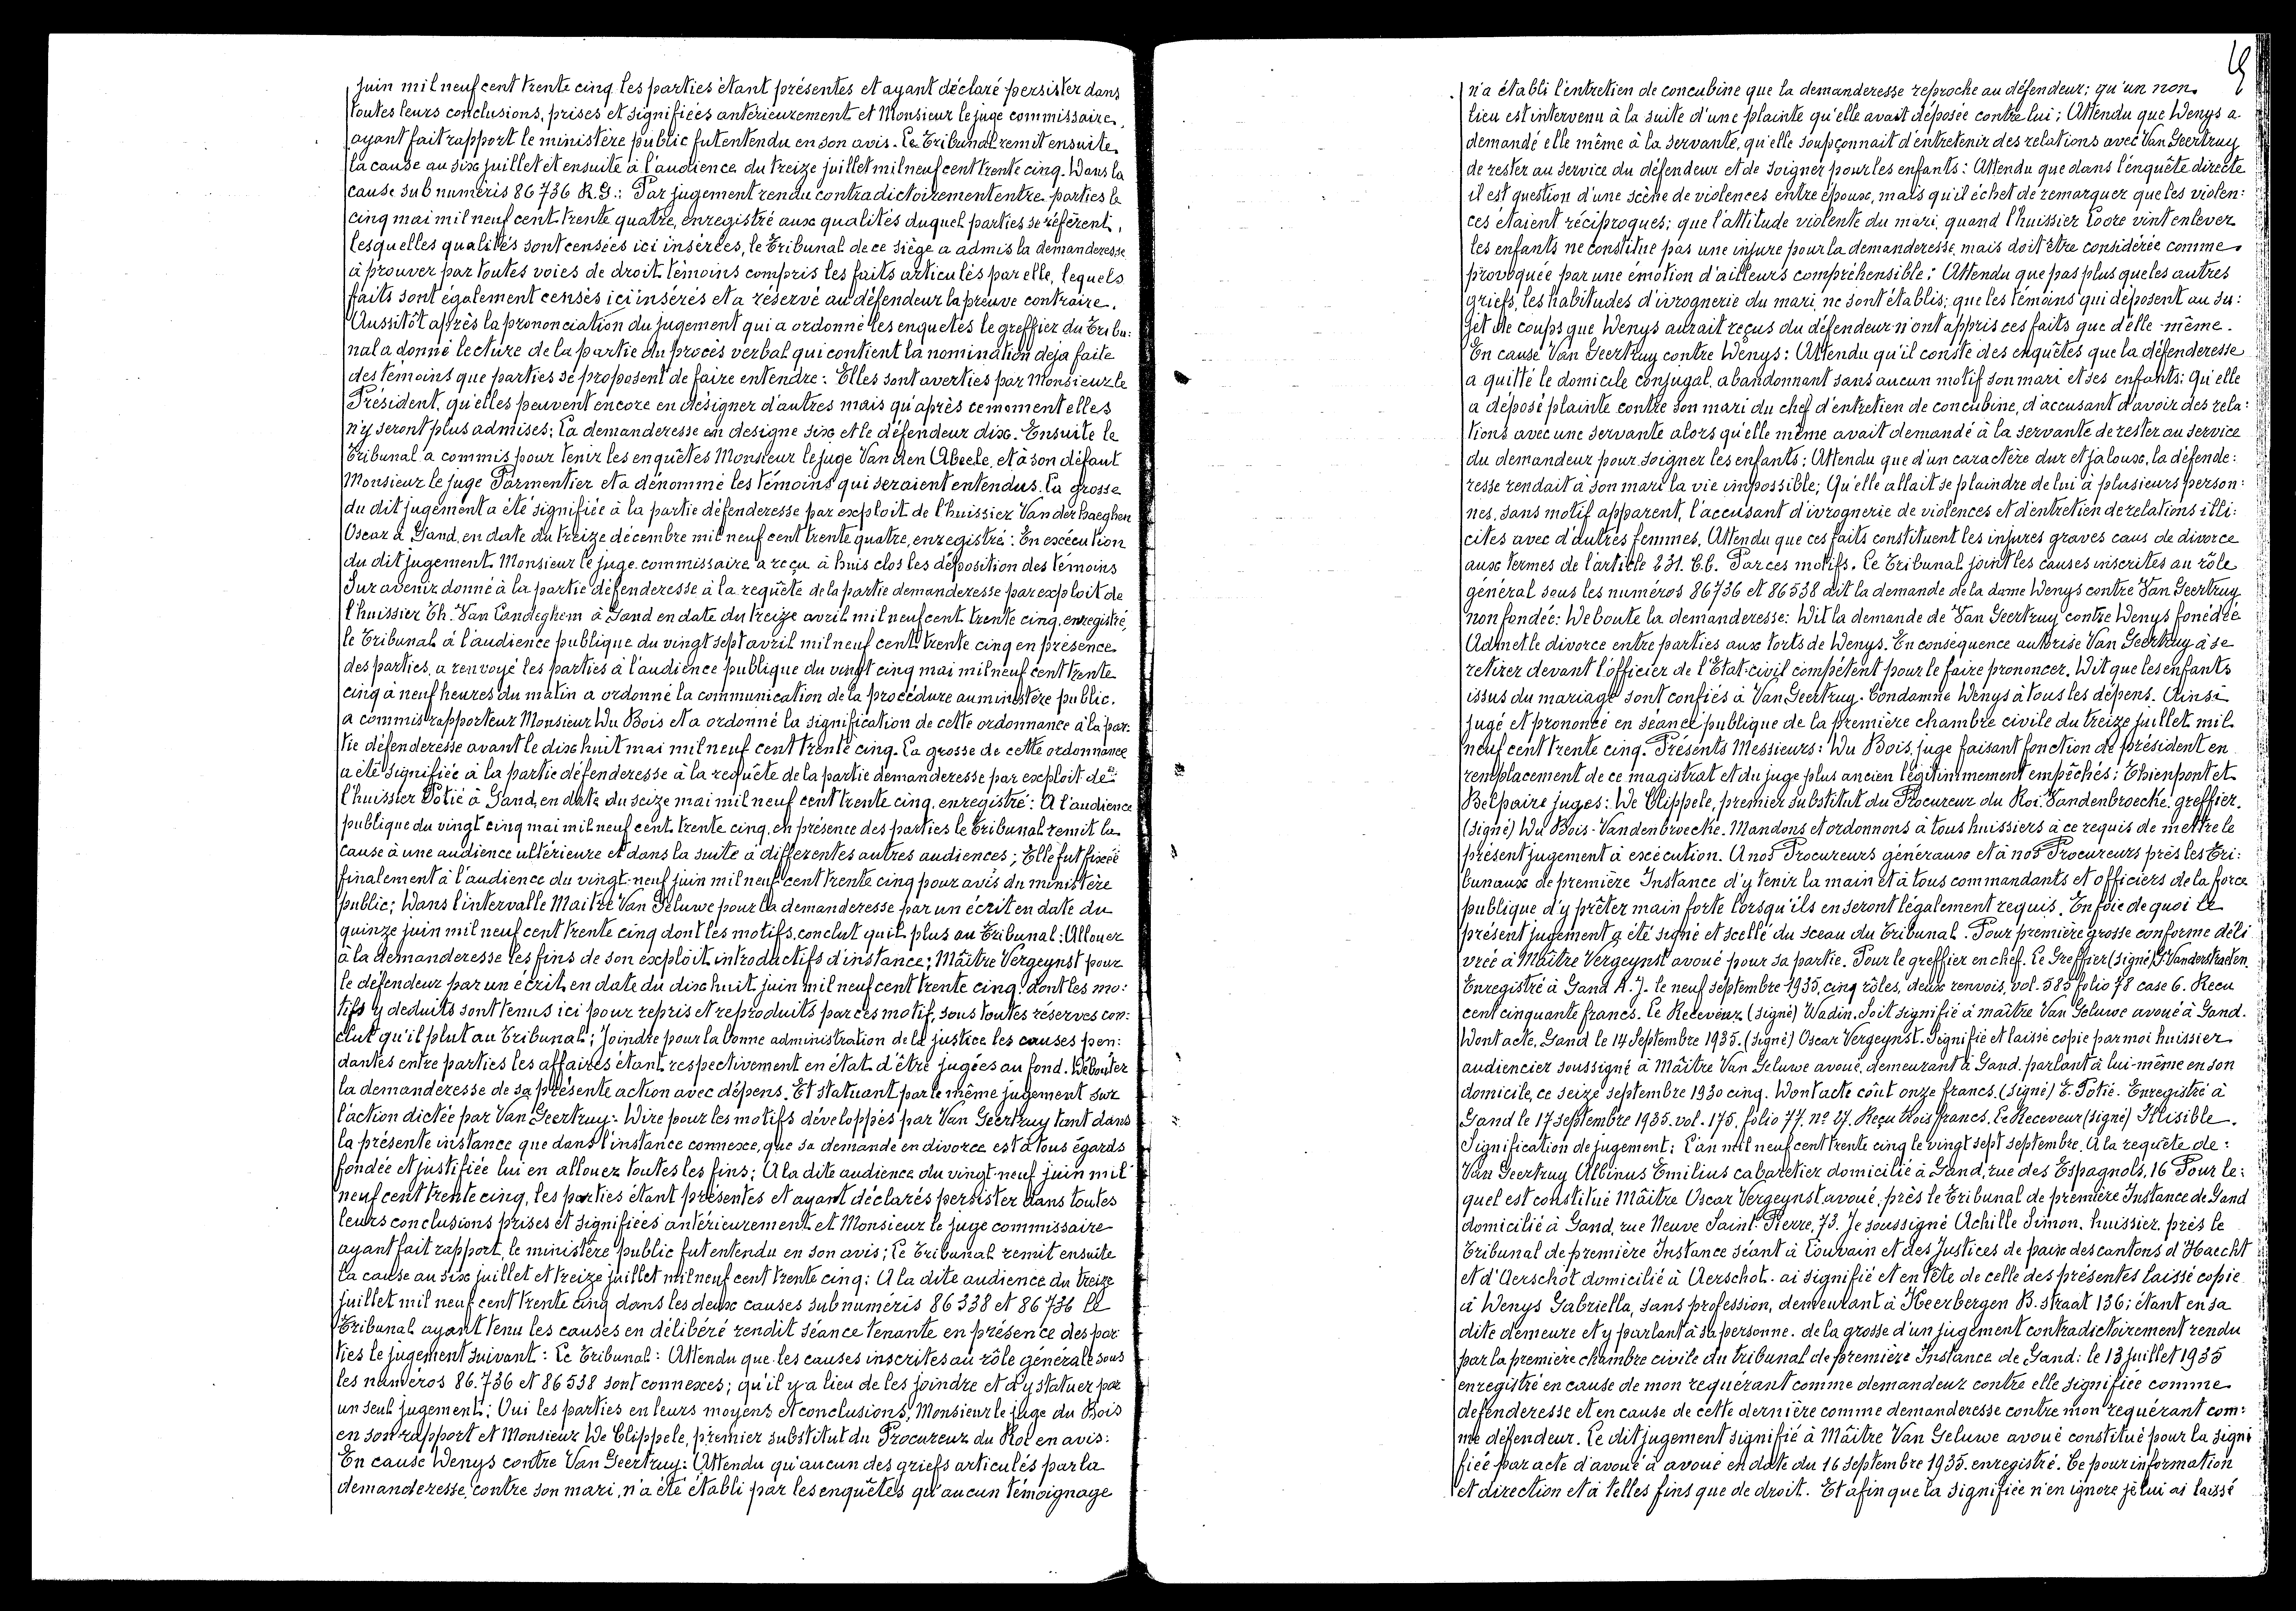 juin mil neuf cent trente cinq les parties étant présentes et ayant déclaré persister dans
toutes leurs conclusions, prises et signifiées antérieurement et Monsieur le juge commissaire,
ayant fait rapport le ministère public fut entendu en son avis. Le Tribunal remit ensuite
la cause au six juillet et ensuite à l'audience du treize juillet mil neuf cent trente cinq. Dans la
cause sub numéris 86736 R.G.: Par jugement rendu contradictoirement entre parties le
cinq mai mil neuf cent trente quatre, enregistré aux qualités duquel parties se réfèrent,
lesquelles qualités sont censées ici insérées, le Tribunal de ce siège a admis la demanderesse
à prouver par toutes voies de droit témoins compris les faits articulés par elle, lequels
faits sont également censés ici insérés et a réservé au défendeur la preuve contraire.
Aussitôt après la prononciation du jugement qui a ordonné les enquetes le greffier du Tribu:
nal a donné lecture de la partie du procès verbal qui contient la nomination deja faite
des témoins que parties se proposent de faire entendre: Elles sont averties par Monsieur le
Président, qu'elles peuvent encore en désigner d'autres mais qu'après ce moment elles
n'y seront plus admises; La demanderesse en designe six et le défendeur dix. Ensuite le
Tribunal a commis pour tenir les enquêtes Monsieur le juge Van den Abeele, et à son défaut
Monsieur le juge Parmentier et a dénommé les témoins qui seraient entendus. La grosse
du dit jugement a été signifiée à la partie défenderesse par exploit de l'huissier Van der haeghen
Oscar à Gand, en date du treize décembre mil neuf cent trente quatre, enregistré: En exécution
du dit jugement Monsieur le juge commissaire a reçu à huis clos les déposition des témoins
Sur avenir donné à la partie défenderesse à la requête de la partie demanderesse par exploit de
l'huissier Th. Van Landeghem à Gand en date du treize avril mil neuf cent trente cinq, enregistré,
le Tribunal à l'audience publique du vingt sept avril mil neuf cent trente cinq en présence
des parties, a renvoyé les parties à l'audience publique du vingt cinq mai mil neuf cent trente
cinq à neuf heures du matin a ordonné la communication de la procédure au ministère public.
a commis rapporteur Monsieur Du Bois et a ordonné la signification de cette ordonnance à la par:
tie défenderesse avant le dix huit mai mil neuf cent trente cinq. La grosse de cette ordonnance
a été signifiée à la partie défenderesse à la requête de la partie demanderesse par exploit de
l'huissier Potié à Gand, en date du seize mai mil neuf cent trente cinq, enregistré: A l'audience
publique du vingt cinq mai mil neuf cent trente cinq, en présence des parties le Tribunal remit la
cause à une audience ultérieure et dans la suite à differentes autres audiences; Elle fut fixée
finalement à l'audience du vingt-neuf juin mil neuf cent trente cinq pour avis du ministère
public; Dans l'intervalle Maitre Van Geluwe pour la demanderesse par un écrit en date du
quinze juin mil neuf cent trente cinq dont les motifs, conclut quil plus au Tribunal: Allouer
à la demanderesse les fins de son exploit introductifs d'instance; Maître Vergeynst pour
le défendeur par un écrit en date du dix huit juin mil neuf cent trente cinq, dont les mo:
tifs y deduits sont tenus ici pour repris et reproduits par ces motif, sous toutes réserves con:
clut qu'il plut au Tribunal; Joindre pour la bonne administration de la justice les causes pen:
dantes entre parties les affaires étant respectivement en état d'être jugées au fond. Débouter
la demanderesse de sa présente action avec dépens. Et statuant par le même jugement sur
l'action dictée par Van Geertruy: Dire pour les motifs développés par Van Geertruy tant dans
la présente instance que dans l'instance connexe, que sa demande en divorce est à tous égards
fondée et justifiée lui en allouez toutes les fins; A la dite audience du vingt-neuf juin mil
neuf cent trente cinq, les parties étant présentes et ayant déclarés persister dans toutes
leurs conclusions prises et signifiées antérieurement et Monsieur le juge commissaire
ayant fait rapport, le ministère public fut entendu en son avis; Le Tribunal remit ensuite
la cause au six juillet et treize juillet mil neuf cent trente cinq: A la dite audience du treize
juillet mil neuf cent trente cinq dans les deux causes sub numéris 86338 et 86736 le
Tribunal ayant tenu les causes en délibéré rendit séance tenante en présence des par
ties le jugement suivant: Le Tribunal: Attendu que les causes inscrites au rôle générale sous
les numéros 86.736 et 86538 sont connexes; qu'il y a lieu de les joindre et d'y statuer par
un seul jugement; Oui les parties en leurs moyens et conclusions; Monsieur le juge du Bois
en son rapport et Monsieur De Clippele, premier substitut du Procureur du Roi en avis:
En cause Wenys contre Van Geertruy: Attendu qu'aucun des griefs articulés par la
demanderesse, contre son mari, n'a été établi par les enquêtes qu'aucun témoignage
n'a établi l'entretien de concubine que la demanderesse reproche au défendeur; qu'un non
lieu est intervenu à la suite d'une plainte qu'elle avait déposée contre lui; Attendu que Wenys a
demandé elle même à la servante, qu'elle soupçonnait d'entretenir des relations avec Van Geertruy
de rester au service du défendeur et de soigner pour les enfants: Attendu que dans l'enquête directe
il est question d'une scène de violences entre époux, mais qu'il échet de remarquer que les violen:
ces étaient réciproques; que l'attitude violente du mari, quand l'huissier Loore vint enlever
les enfants ne constitue pas une injure pour la demanderesse, mais doit être considérée comme
provoquée par une émotion d'ailleurs compréhensible: Attendu que pas plus que les autres
griefs, les habitudes d'ivrognerie du mari ne sont établis; que les témoins qui déposent au su:
jet de coups que Wenys aurait reçus du défendeur n'ont appris ces faits que d'elle-même.
En cause Van Geertruy contre Wenys: Attendu qu'il conste des enquêtes que la défenderesse
a quitté le domicile conjugal, abandonnant sans aucun motif son mari et ses enfants; Qu'elle
a déposé plainte contre son mari du chef d'entretien de concubine, d'accusant d'avoir des rela:
tions avec une servante alors qu'elle même avait demandé à la servante de rester au service
du demandeur pour soigner les enfants; Attendu que d'un caractère dur et jaloux, la défende:
resse rendait à son mari la vie impossible; Qu'elle allait se plaindre de lui à plusieurs person:
nes, sans motif apparent, l'accusant d'ivrognerie de violences et d'entretien de relations illi:
cites avec d'autres femmes, Attendu que ces faits constituent les injures graves caus de divorce
aux termes de l'article 231. C.C. Par ces motifs. Le Tribunal joint les causes inscrites au rôle
général sous les numéros 86736 et 86538 dit la demande de la dame Wenys contre Van Geertruy
non fondée: Deboute la demanderesse: Dit la demande de Van Geertruy contre Wenys fonédée
Admet le divorce entre parties aux torts de Wenys. En conséquence autorise Van Geertruy à se
retirer devant l'officier de l'Etat-civil compétent pour le faire prononcer. Dit que les enfants
issus du mariage sont confiés à Van Geertruy. Condamne Wenys à tous les dépens. Ainsi
jugé et prononcé en séance publique de la première chambre civile du treize juillet mil
neuf cent trente cinq. Présents Messieurs: Du Bois, juge faisant fonction de président en
remplacement de ce magistrat et du juge plus ancien légitimmement empêchés; Thienpont et
Belpaire juges: De Clippele, premier substitut du Procureur du Roi. Vandenbroecke, greffier.
(signé) Du Bois-Vandenbroecke. Mandons et ordonnons à tous huissiers à ce requis de mettre le
présent jugement à exécution. A nos Procureurs généraux et à nos Procureurs près les Tri:
bunaux de première Instance d'y tenir la main et à tous commandants et officiers de la force
publique d'y prêter main forte lorsqu'ils en seront légalement requis. En foie de quoi le
présent jugement a été signé et scellé du sceau du Tribunal. Pour première grosse conforme déli
vrée à Maître Vergeynst avoué pour sa partie. Pour le greffier en chef. Le Greffier (signé) Vanderstraeten.
Enregistré à Gand A.J. le neuf septembre 1935, cinq rôles, deux renvois, vol. 585 folio 78 case 6. Recu
cent cinquante francs. Le Receveur (signé) Wadin. Soit signifié à maître Van Geluwe avoué à Gand.
Dont acte. Gand le 14 Septembre 1935. (signé) Oscar Vergeynst. Signifié et laissé copie par moi huissier
audiencier soussigné à Maître Van Geluwe avoué, demeurant à Gand, parlant à lui-même en son
domicile, ce seize septembre 1930 cinq. Dont acte coût onze francs. (signé) E. Potié. Enregistré à
Gand le 17 septembre 1935. vol. 175, folio 77. no 27. Reçu trois francs. Le Receveur (signé) Illisible.
Signification de jugement: L'an mil neuf cent trente cinq le vingt sept septembre. A la requête de:
Van Geertruy Albinus Emilius cabaretier domicilié à Gand, rue des Espagnols, 16 Pour le:
quel est constitué Maître Oscar Vergeynst, avoué, près le Tribunal de première Instance de Gand
domicilié à Gand, rue Neuve Saint Pierre, 73. Je soussigné Achille Simon, huissier près le
Tribunal de première Instance séant à Louvain et des Justices de paix des cantons d'Haecht
et d'Aerschot domicilié à Aerschot. ai signifié et en tête de celle des présentes laissé copie
à Wenys Gabriella, sans profession, demeurant à Keerbergen B. straat 136; étant en sa
dite demeure et y parlant à sa personne. de la grosse d'un jugement contradictoirement rendu
par la première chambre civile du tribunal de première Instance de Gand: le 13 juillet 1935
enregistré en cause de mon requérant comme demandeur contre elle signifiée comme
defenderesse et en cause de cette dernière comme demanderesse contre mon requérant com:
me défendeur. Le dit jugement signifié à Maître Van Geluwe avoué constitué pour la signi
fiée par acte d'avoué à avoué en date du 16 septembre 1935. enregistré. Ce pour information
et direction et à telles fins que de droit. Et afin que la signifiée n'en ignore je lui ai laissé